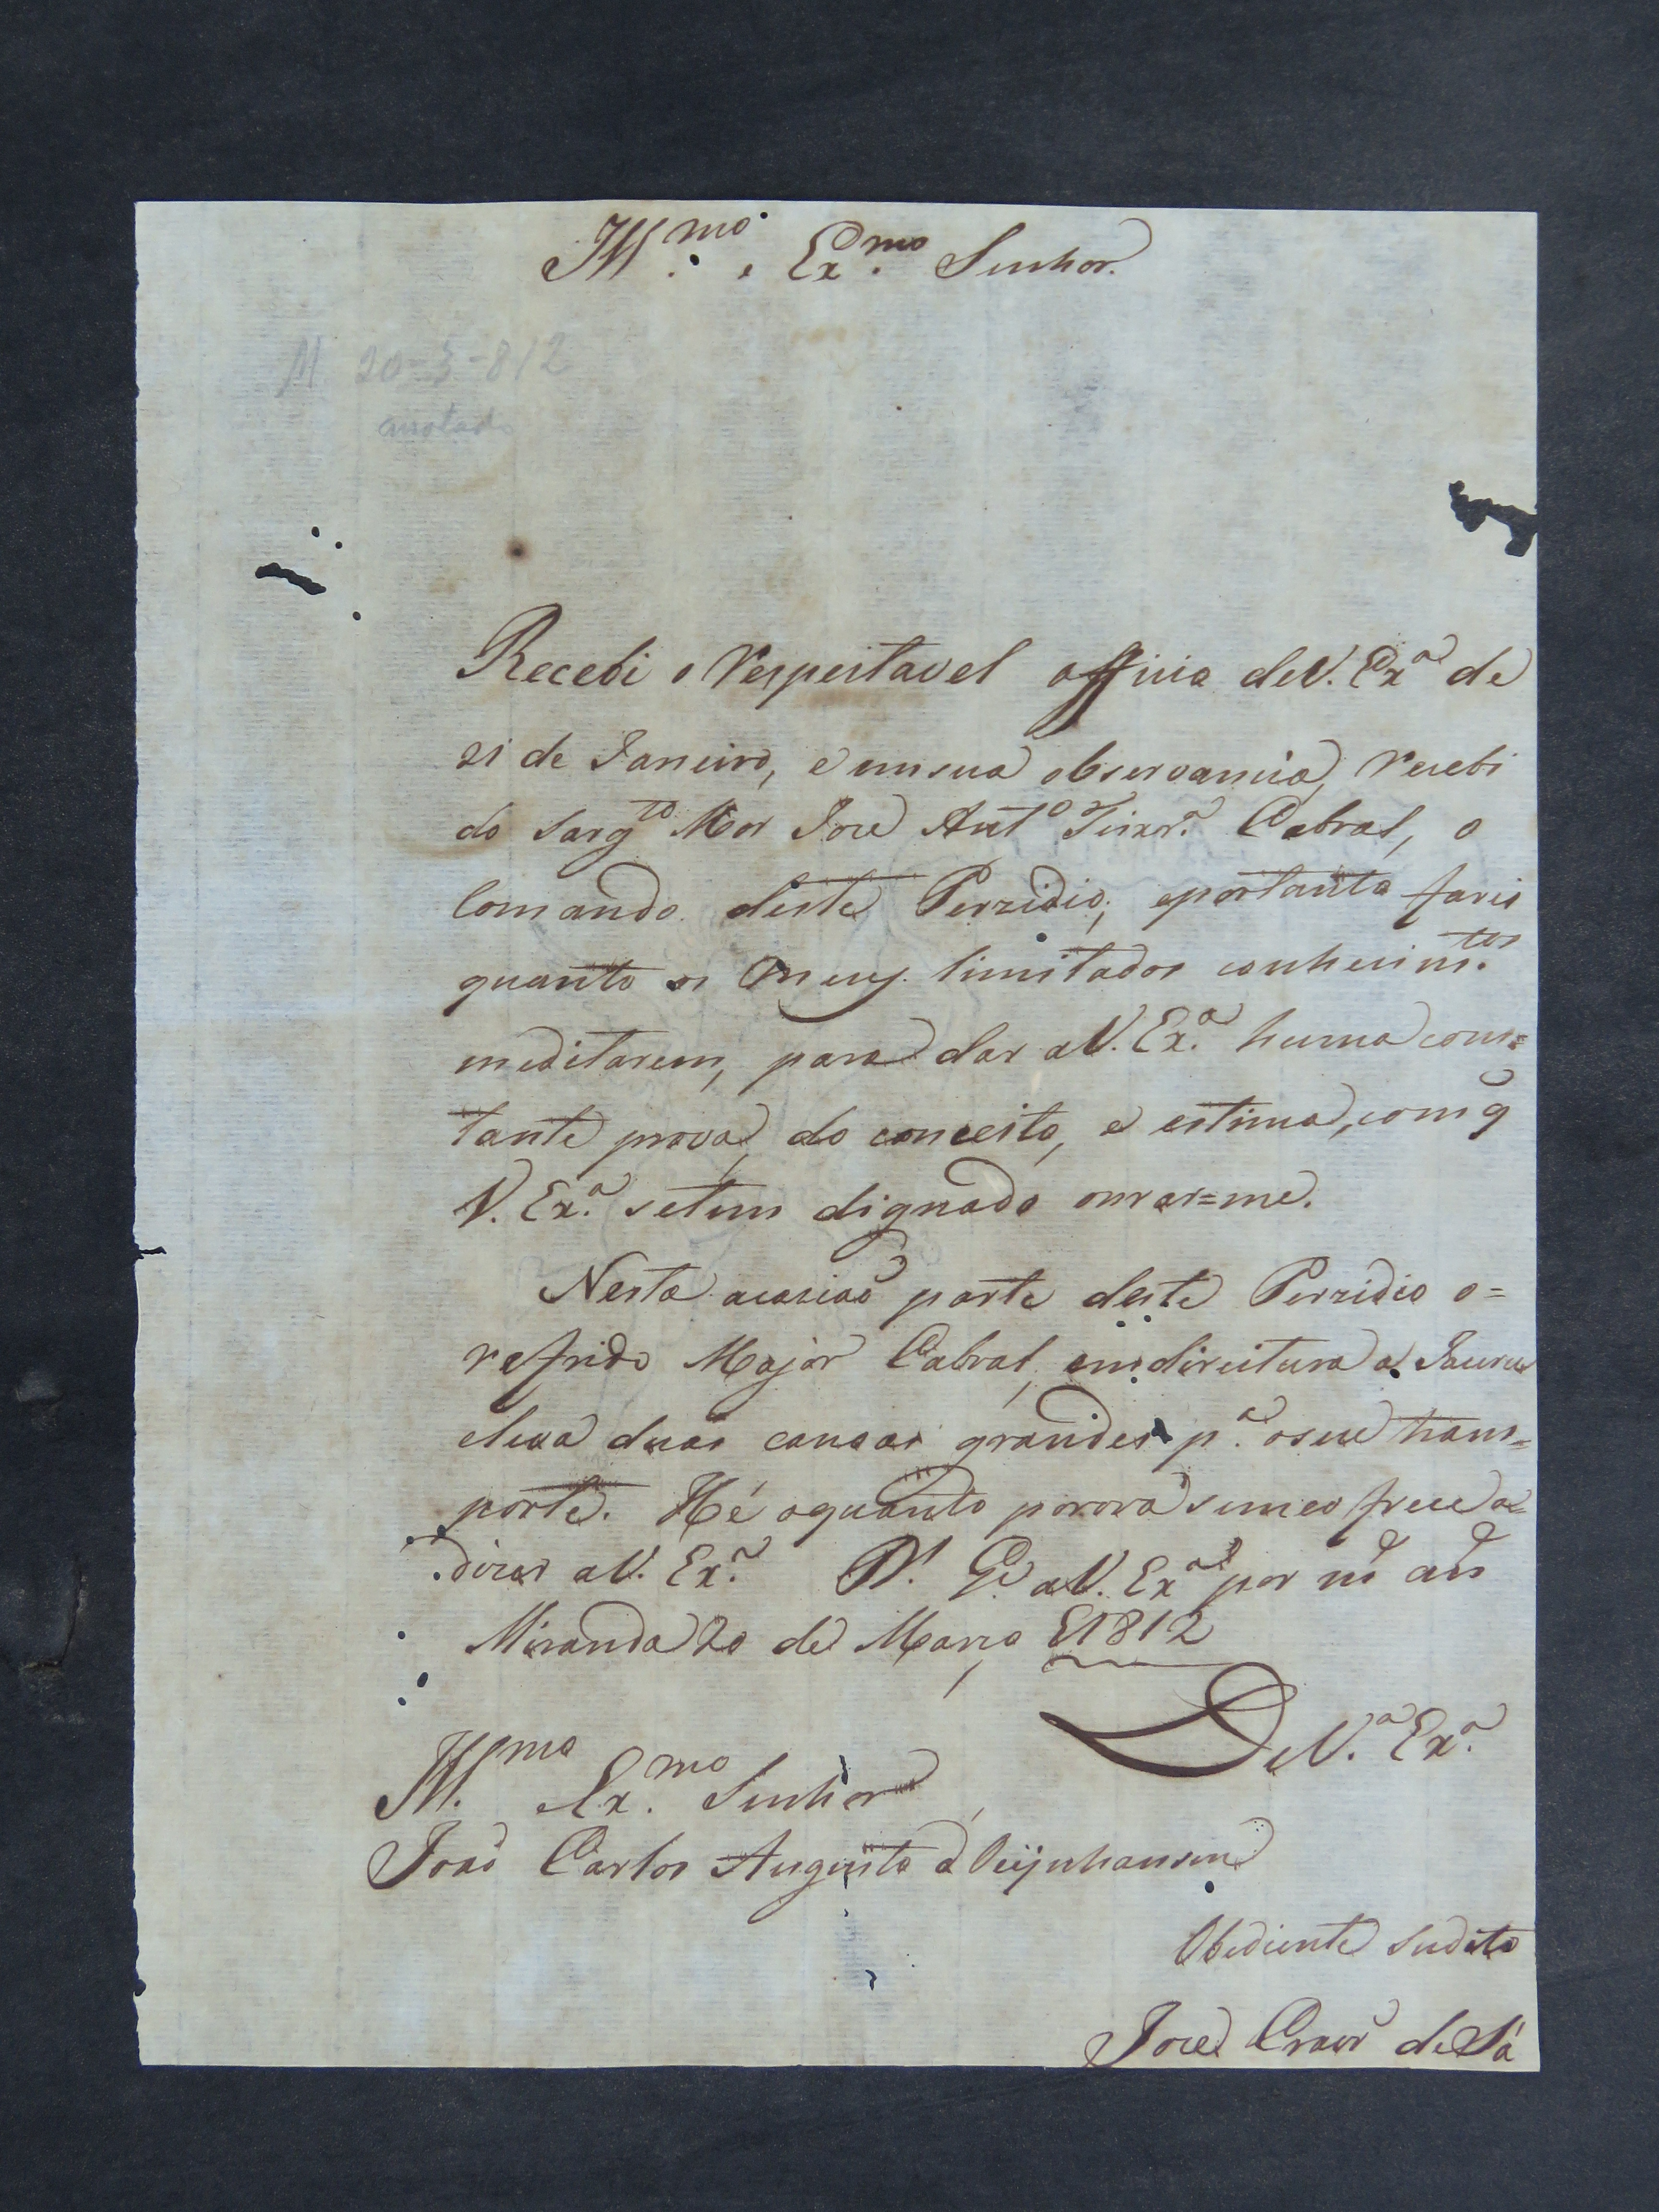 Ill.mo e Ex.mo Senhor.
M 20-3-812
anotado
Recebi o respeitavel officio deV. Exª de
21 de Janeiro, e emsua observancia, recebi
do Sargto Mor Joze Antº Teixrª Cabral, o
Comando deste Perzidio; eportanto farei
quanto os meus limitados conhecim.tos
meditarem, para dar aV. Ex.ª huma cons=
tante prova, do conceito, e estima, com q̃
V. Ex.ª setem dignado onrar=me.
Nesta acasiaõ parte deste Perzidio o=
refrido Major Cabral, emdireitura a Jauru
eleva duas canoas grandes p.ª oseu trans=
porte. Hé oquanto porora semeofrece a=
dizer aV. Ex.ª D.s G.e aV. Exª por ms ans
Miranda 20 de Março de 1812
DeV.ª Ex.ª
Ill.mo eEx.mo Senhor
Joaõ Carlos Augusto d'Oeijnhausen
Obediente Sudito
Joze Cravrº deSá